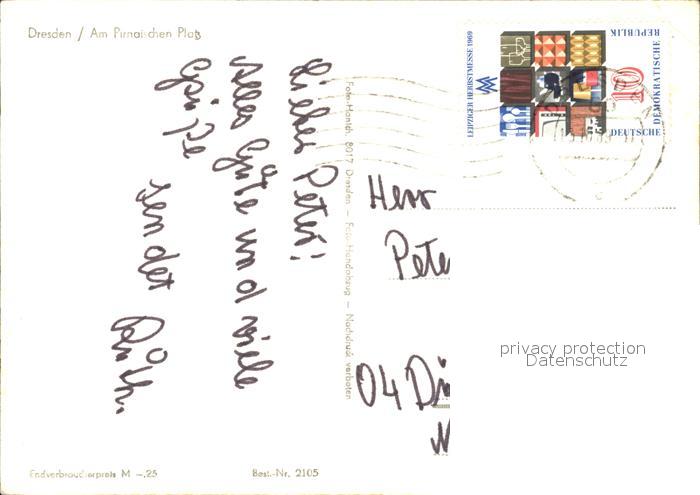 Dresden / Am Pirnaischen Platz
Lieber Peter!
Alles Gute und viele
Grüße
sendet
Foto-Handabzug – Nachdruck verboten
8017 Dresden
LEIPZIGER HERBSTMESSE 1969
10
DEUTSCHE
DEMOKRATISCHE
REPUBLIK
Herr
Pete
04
privacy protection
Datenschutz
Endverbraucherpreis M –,25
Best.-Nr. 2105